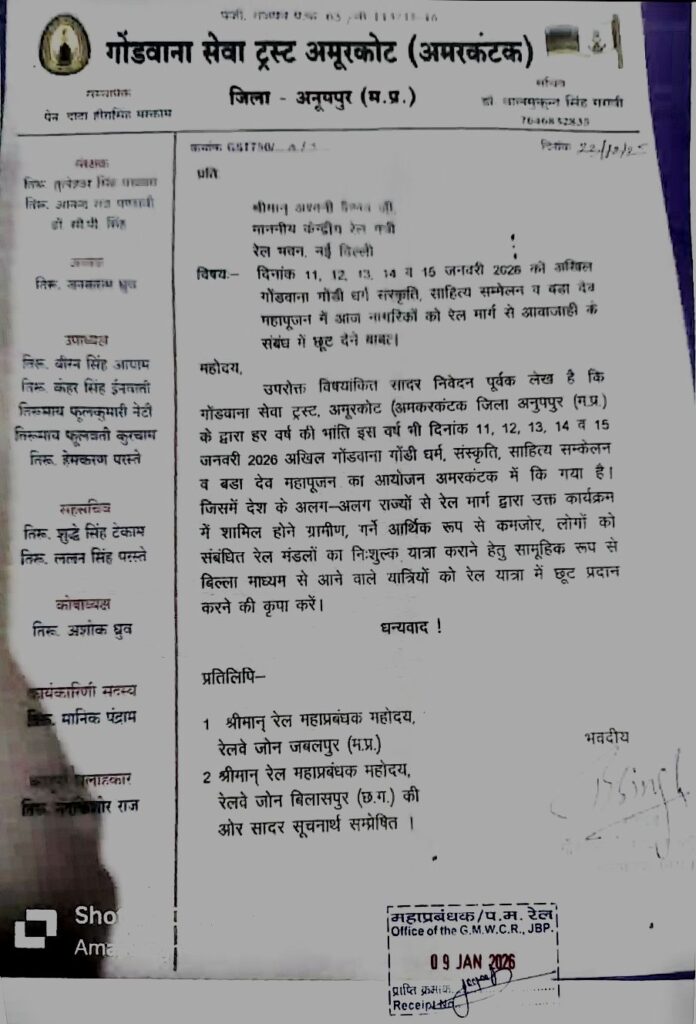 गोंडवाना सेवा ट्रस्ट अमूरकोट (अमरकंटक)
जिला - अनूपपुर (म.प्र.)
संस्थापक
पेन दादा हीरासिंह मरकाम
सचिव
7646832835
क्रमांक
दिनांक 22/12/25
प्रति
माननीय केन्द्रीय रेल मंत्री
रेल भवन, नई दिल्ली
विषय:- दिनांक 11, 12, 13, 14 व 15 जनवरी 2026 को अखिल
गोंडवाना गोंडी धर्म संस्कृति, साहित्य सम्मेलन व बडा देव
महापूजन में आज नागरिकों को रेल मार्ग से आवाजाही के
संबंध में छूट देने बाबत।
महोदय,
उपरोक्त विषयांकित सादर निवेदन पूर्वक लेख है कि
गोंडवाना सेवा ट्रस्ट, अमूरकोट (अमकरकंटक जिला अनुपपुर (म.प्र.)
के द्वारा हर वर्ष की भांति इस वर्ष भी दिनांक 11, 12, 13, 14 व 15
जनवरी 2026 अखिल गोंडवाना गोंडी धर्म, संस्कृति, साहित्य सम्केलन
व बडा देव महापूजन का आयोजन अमरकंटक में कि गया है।
जिसमें देश के अलग–अलग राज्यों से रेल मार्ग द्वारा उक्त कार्यक्रम
में शामिल होने ग्रामीण, गर्ने आर्थिक रूप से कमजोर, लोगों को
संबंधित रेल मंडलों का निःशुल्क यात्रा कराने हेतु सामूहिक रूप से
बिल्ला माध्यम से आने वाले यात्रियों को रेल यात्रा में छूट प्रदान
करने की कृपा करें।
धन्यवाद !
प्रतिलिपि–
1 श्रीमान् रेल महाप्रबंधक महोदय,
रेलवे जोन जबलपुर (म.प्र.)
2 श्रीमान् रेल महाप्रबंधक महोदय,
रेलवे जोन बिलासपुर (छ.ग.) की
ओर सादर सूचनार्थ सम्प्रेषित ।
भवदीय
संरक्षक
डॉ सी.पी. सिंह
अध्यक्ष
तिरू. धुव
उपाध्यक्ष
तिरू. वीरन सिंह आयाम
तिरू. कंहर सिंह ईनवाती
तिरूमाय फूलकुमारी नेटी
तिरूमाय फूलवती कुरचाम
तिरू. हेमकरण परस्ते
सहसचिव
तिरू. शुद्धे सिंह टेकाम
तिरू. ललन सिंह परस्ते
कोषाध्यक्ष
तिरू. अशोक धुव
कार्यकारिणी सदस्य
तिरू. मानिक पंद्राम
सलाहकार
राज
महाप्रबंधक/प.म. रेल
Office of the G.M.W.C.R., JBP.
09 JAN 2026
प्राप्ति क्रमांक
Receipt No.